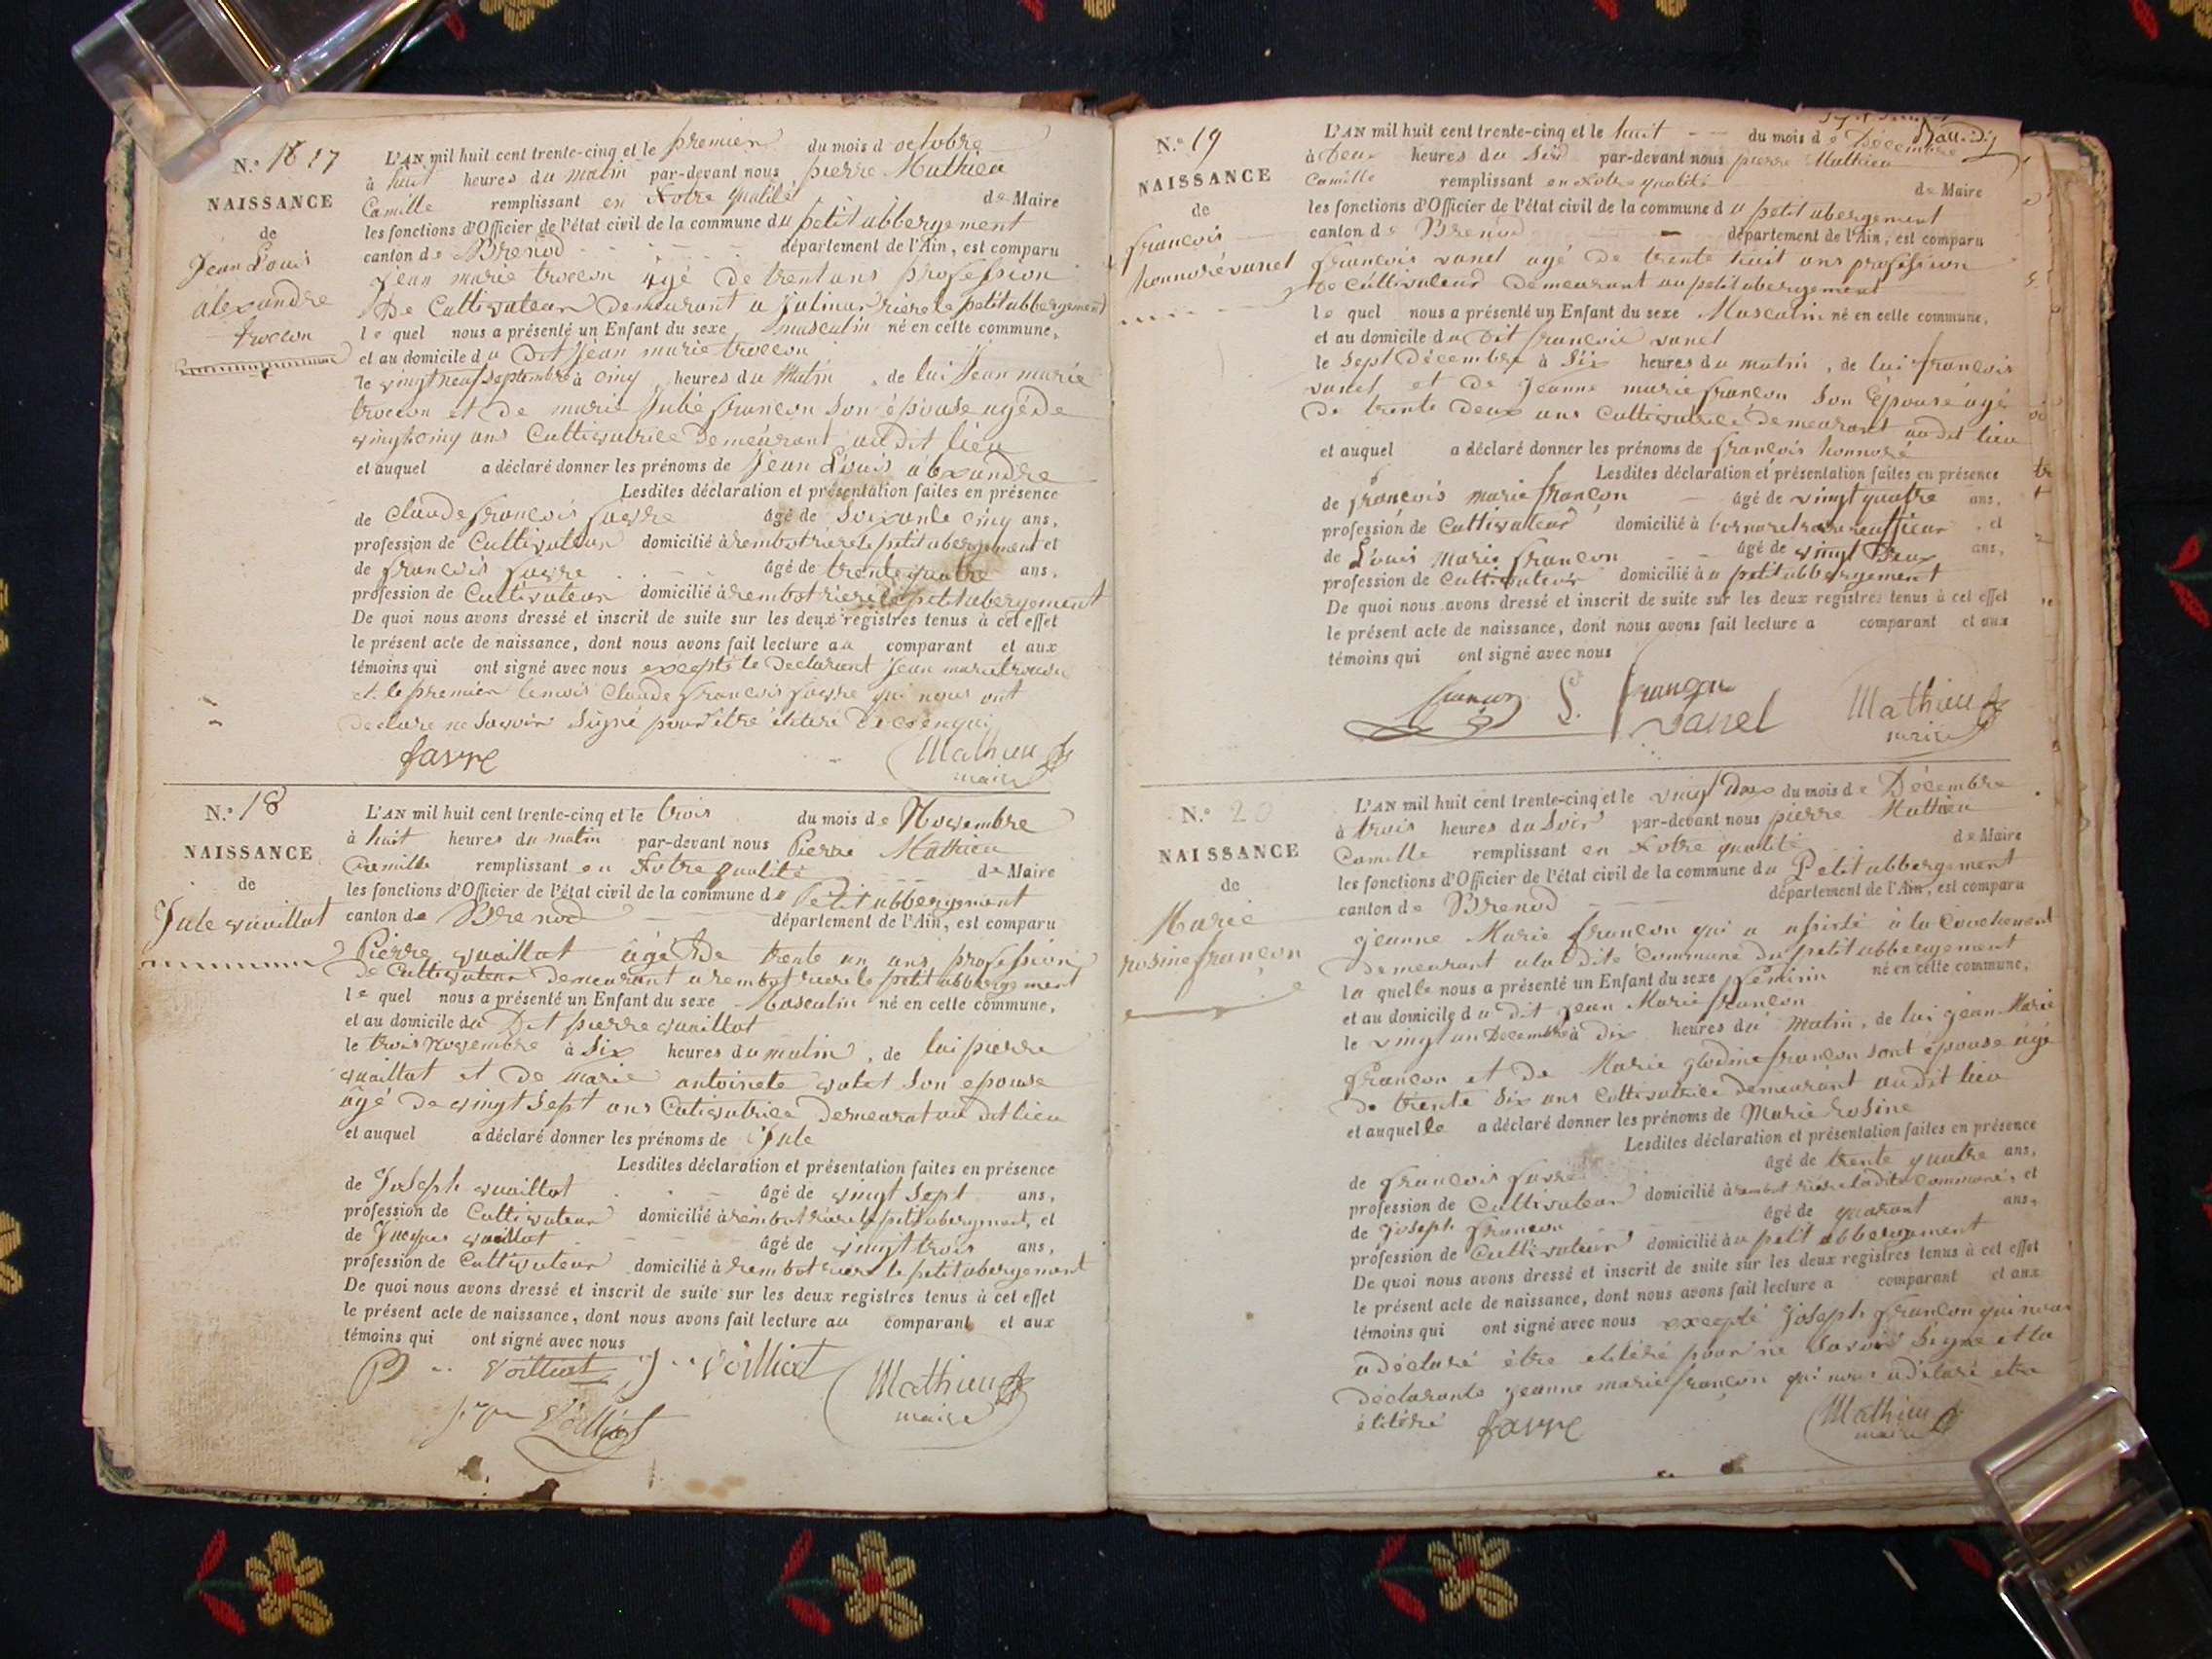 N.º 16 17
NAISSANCE
de
Jean Louis
alexandre
trocon
L'AN mil huit cent trente-cinq et le premier du mois d octobre
à huit heures du matin par-devant nous pierre Mathieu
Camille remplissant en Notre qualité de Maire
les fonctions d'Officier de l'état civil de la commune du petit abbergement
canton de Brenod département de l'Ain, est comparu
Jean marie trocon âgé de trent ans profession
De Cultivateur Demeurant a jalinar rière le petit abbergement
le quel nous a présenté un Enfant du sexe masculin né en cette commune,
et au domicile du Dit Jean marie trocon
le vingt neuf septembre à cinq heures du Matin, de lui Jean marie
trocon et de marie Julie françon son épouse agé de
vingt cinq ans Cultivatrice Demeurant au dit lieu
et auquel a déclaré donner les prénoms de Jean Louis alexandre
Lesdites déclaration et présentation faites en présence
de Claude françois favre âgé de soixante cinq ans,
profession de Cultivateur domicilié à rembot rière le petit abergement et
de françois favre âgé de trente quatre ans,
profession de Cultivateur domicilié à rembot rière le petit abergement
De quoi nous avons dressé et inscrit de suite sur les deux registres tenus à cet effet
le présent acte de naissance, dont nous avons fait lecture au comparant et aux
témoins qui ont signé avec nous excepté le Declarant Jean marie trocon
et le premier temois Claude françois favre qui nous ont
declare ne savoir signé pour être élitéré De ce enqui
favre Mathieu
maire
N.º 18
NAISSANCE
de
Jule vuaillat
L'AN mil huit cent trente-cinq et le trois du mois de Novembre
à huit heures du matin par-devant nous Pierre Mathieu
Camille remplissant en Notre qualité de Maire
les fonctions d'Officier de l'état civil de la commune du Petit abbergement
canton de Brenod département de l'Ain, est comparu
Pierre vuaillat âgé de trente un ans profession
de Cultivateur demeurant a rembot rière le petit abbergement
le quel nous a présenté un Enfant du sexe Masculin né en cette commune,
et au domicile du Dit pierre vuaillat
le trois Novembre à Six heures du matin, de lui pierre
vuaillat et de marie antoinete vulet son epouse
âgé de vingt sept ans Cutivatrice demeurat au dit lieu
et auquel a déclaré donner les prénoms de Jule
Lesdites déclaration et présentation faites en présence
de Joseph vuaillat âgé de vingt sept ans,
profession de Cultivateur domicilié à rembot rière le petit abergement, et
de Jacques vuaillat âgé de vingt trois ans,
profession de Cultivateur domicilié à rembot rière le petit abergement
De quoi nous avons dressé et inscrit de suite sur les deux registres tenus à cet effet
le présent acte de naissance, dont nous avons fait lecture au comparant et aux
témoins qui ont signé avec nous
P Voilliat J Voilliat Mathieu
Voilliat maire
N.º 19
NAISSANCE
de
françois
honnoré vanel
L'AN mil huit cent trente-cinq et le huit du mois de Décembre
à deux heures du Soir par-devant nous pierre Mathieu
Camille remplissant en Notre qualité de Maire
les fonctions d'Officier de l'état civil de la commune du petit abergement
canton de Brenod département de l'Ain, est comparu
françois vanel agé de trente huit ans profession
de Cultivateur demeurant au petit abergement
le quel nous a présenté un Enfant du sexe Masculin né en cette commune,
et au domicile du Dit françois vanel
le sept Décembre à Six heures du matin, de lui françois
vanel et de Jeanne marie françon Son Épouse âgé
de trente deux ans Cultivatrice demeurant au dit lieu
et auquel a déclaré donner les prénoms de françois honnoré
Lesdites déclaration et présentation faites en présence
de françois marie françon âgé de vingt quatre ans,
profession de Cultivateur domicilié à et
de Louis Marie françon âgé de vingt Deux ans,
profession de Cultivateur domicilié à u petit abbergement
De quoi nous avons dressé et inscrit de suite sur les deux registres tenus à cet effet
le présent acte de naissance, dont nous avons fait lecture a comparant et aux
témoins qui ont signé avec nous
françon L. françon
vanel Mathieu
maire
N.º 20
NAISSANCE
de
Marie
rosine françon
L'AN mil huit cent trente-cinq et le vingt Deux du mois de Décembre
à trois heures du Soir par-devant nous pierre Mathieu
Camille remplissant en Notre qualité de Maire
les fonctions d'Officier de l'état civil de la commune du Petit abbergement
canton de Brenod département de l'Ain, est comparu
jeanne Marie françon qui a assisté à la Couchement
demeurant a la dite Commune du petit abbergement
la quelle nous a présenté un Enfant du sexe féminin né en cette commune,
et au domicile du dit jean Marie françon
le vingt un Decembre à dix heures du Matin, de lui jean Marie
françon et de Marie glodine françon sont épouse âgé
de trente Six ans Cultivatrice demeurant au dit lieu
et auquelle a déclaré donner les prénoms de Marie Rosine
Lesdites déclaration et présentation faites en présence
de françois favre âgé de trente quatre ans,
profession de Cultivateur domicilié à rembot rière la dite Commune, et
de joseph françon âgé de quarant ans,
profession de Cultivateur domicilié à u petit abbergement
De quoi nous avons dressé et inscrit de suite sur les deux registres tenus à cet effet
le présent acte de naissance, dont nous avons fait lecture a comparant et aux
témoins qui ont signé avec nous excepté joseph françon qui nous
a déclaré être élitéré pour ne Savoir Signe et la
déclarante jeanne marie françon qui nous a déclaré etre
élitéré favre Mathieu
maire